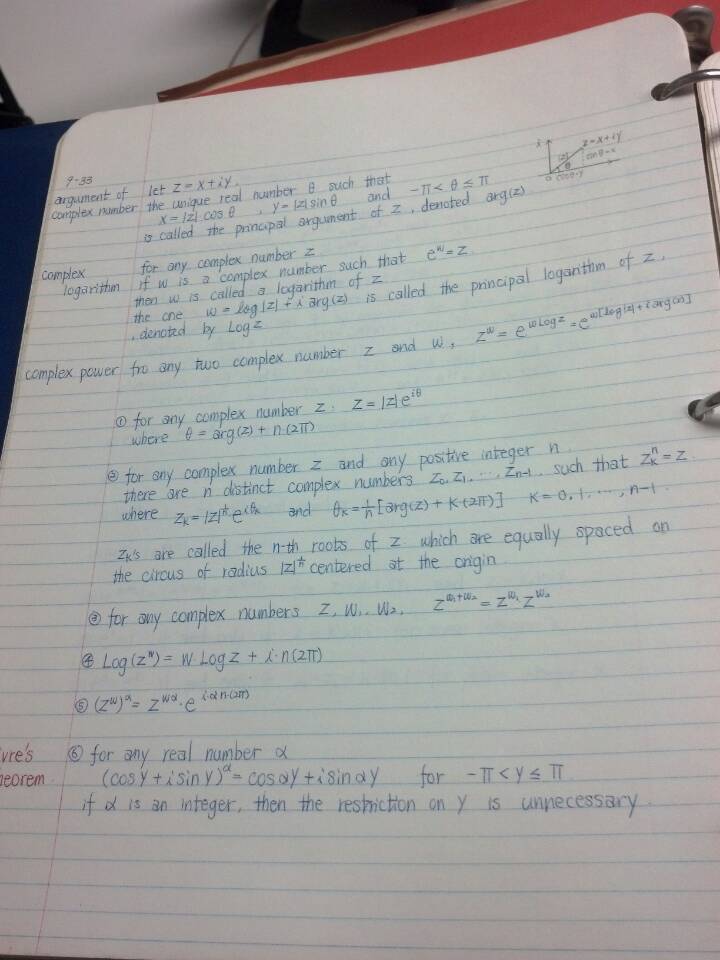 9-33
argument of complex number
let z = x + iy.
the unique real number θ such that
x = |z| cos θ , y = |z| sin θ and -π < θ ≤ π
is called the principal argument of z, denoted arg(z)
z = x + iy
|z|
θ
complex logarithm
for any complex number z
if w is a complex number such that e^w = z.
then w is called a logarithm of z
the one w = log|z| + i arg(z) is called the principal logarithm of z.
, denoted by Log z
complex power fro any two complex number z and w, z^w = e^{w Log z} = e^{w[log|z| + i arg(z)]}
① for any complex number z. z = |z| e^{iθ}
where θ = arg(z) + n(2π)
② for any complex number z and any positive integer n.
there are n distinct complex numbers z₀, z₁, ..., z_{n-1} such that z_k^n = z.
where z_k = |z|^{1/n} e^{iθ_k} and θ_k = 1/n [arg(z) + k(2π)] k = 0, 1, ..., n-1.
z_k's are called the n-th roots of z which are equally spaced on
the circus of radius |z|^{1/n} centered at the origin
③ for any complex numbers z, w₁, w₂, z^{w₁+w₂} = z^{w₁} z^{w₂}
④ Log(z^w) = w Log z + i·n(2π)
⑤ (z^w)^α = z^{wα} · e^{i·αn·(2π)}
ivre's
heorem
⑥ for any real number α
(cos y + i sin y)^α = cos αy + i sin αy for -π < y ≤ π
if α is an integer, then the restriction on y is unnecessary.